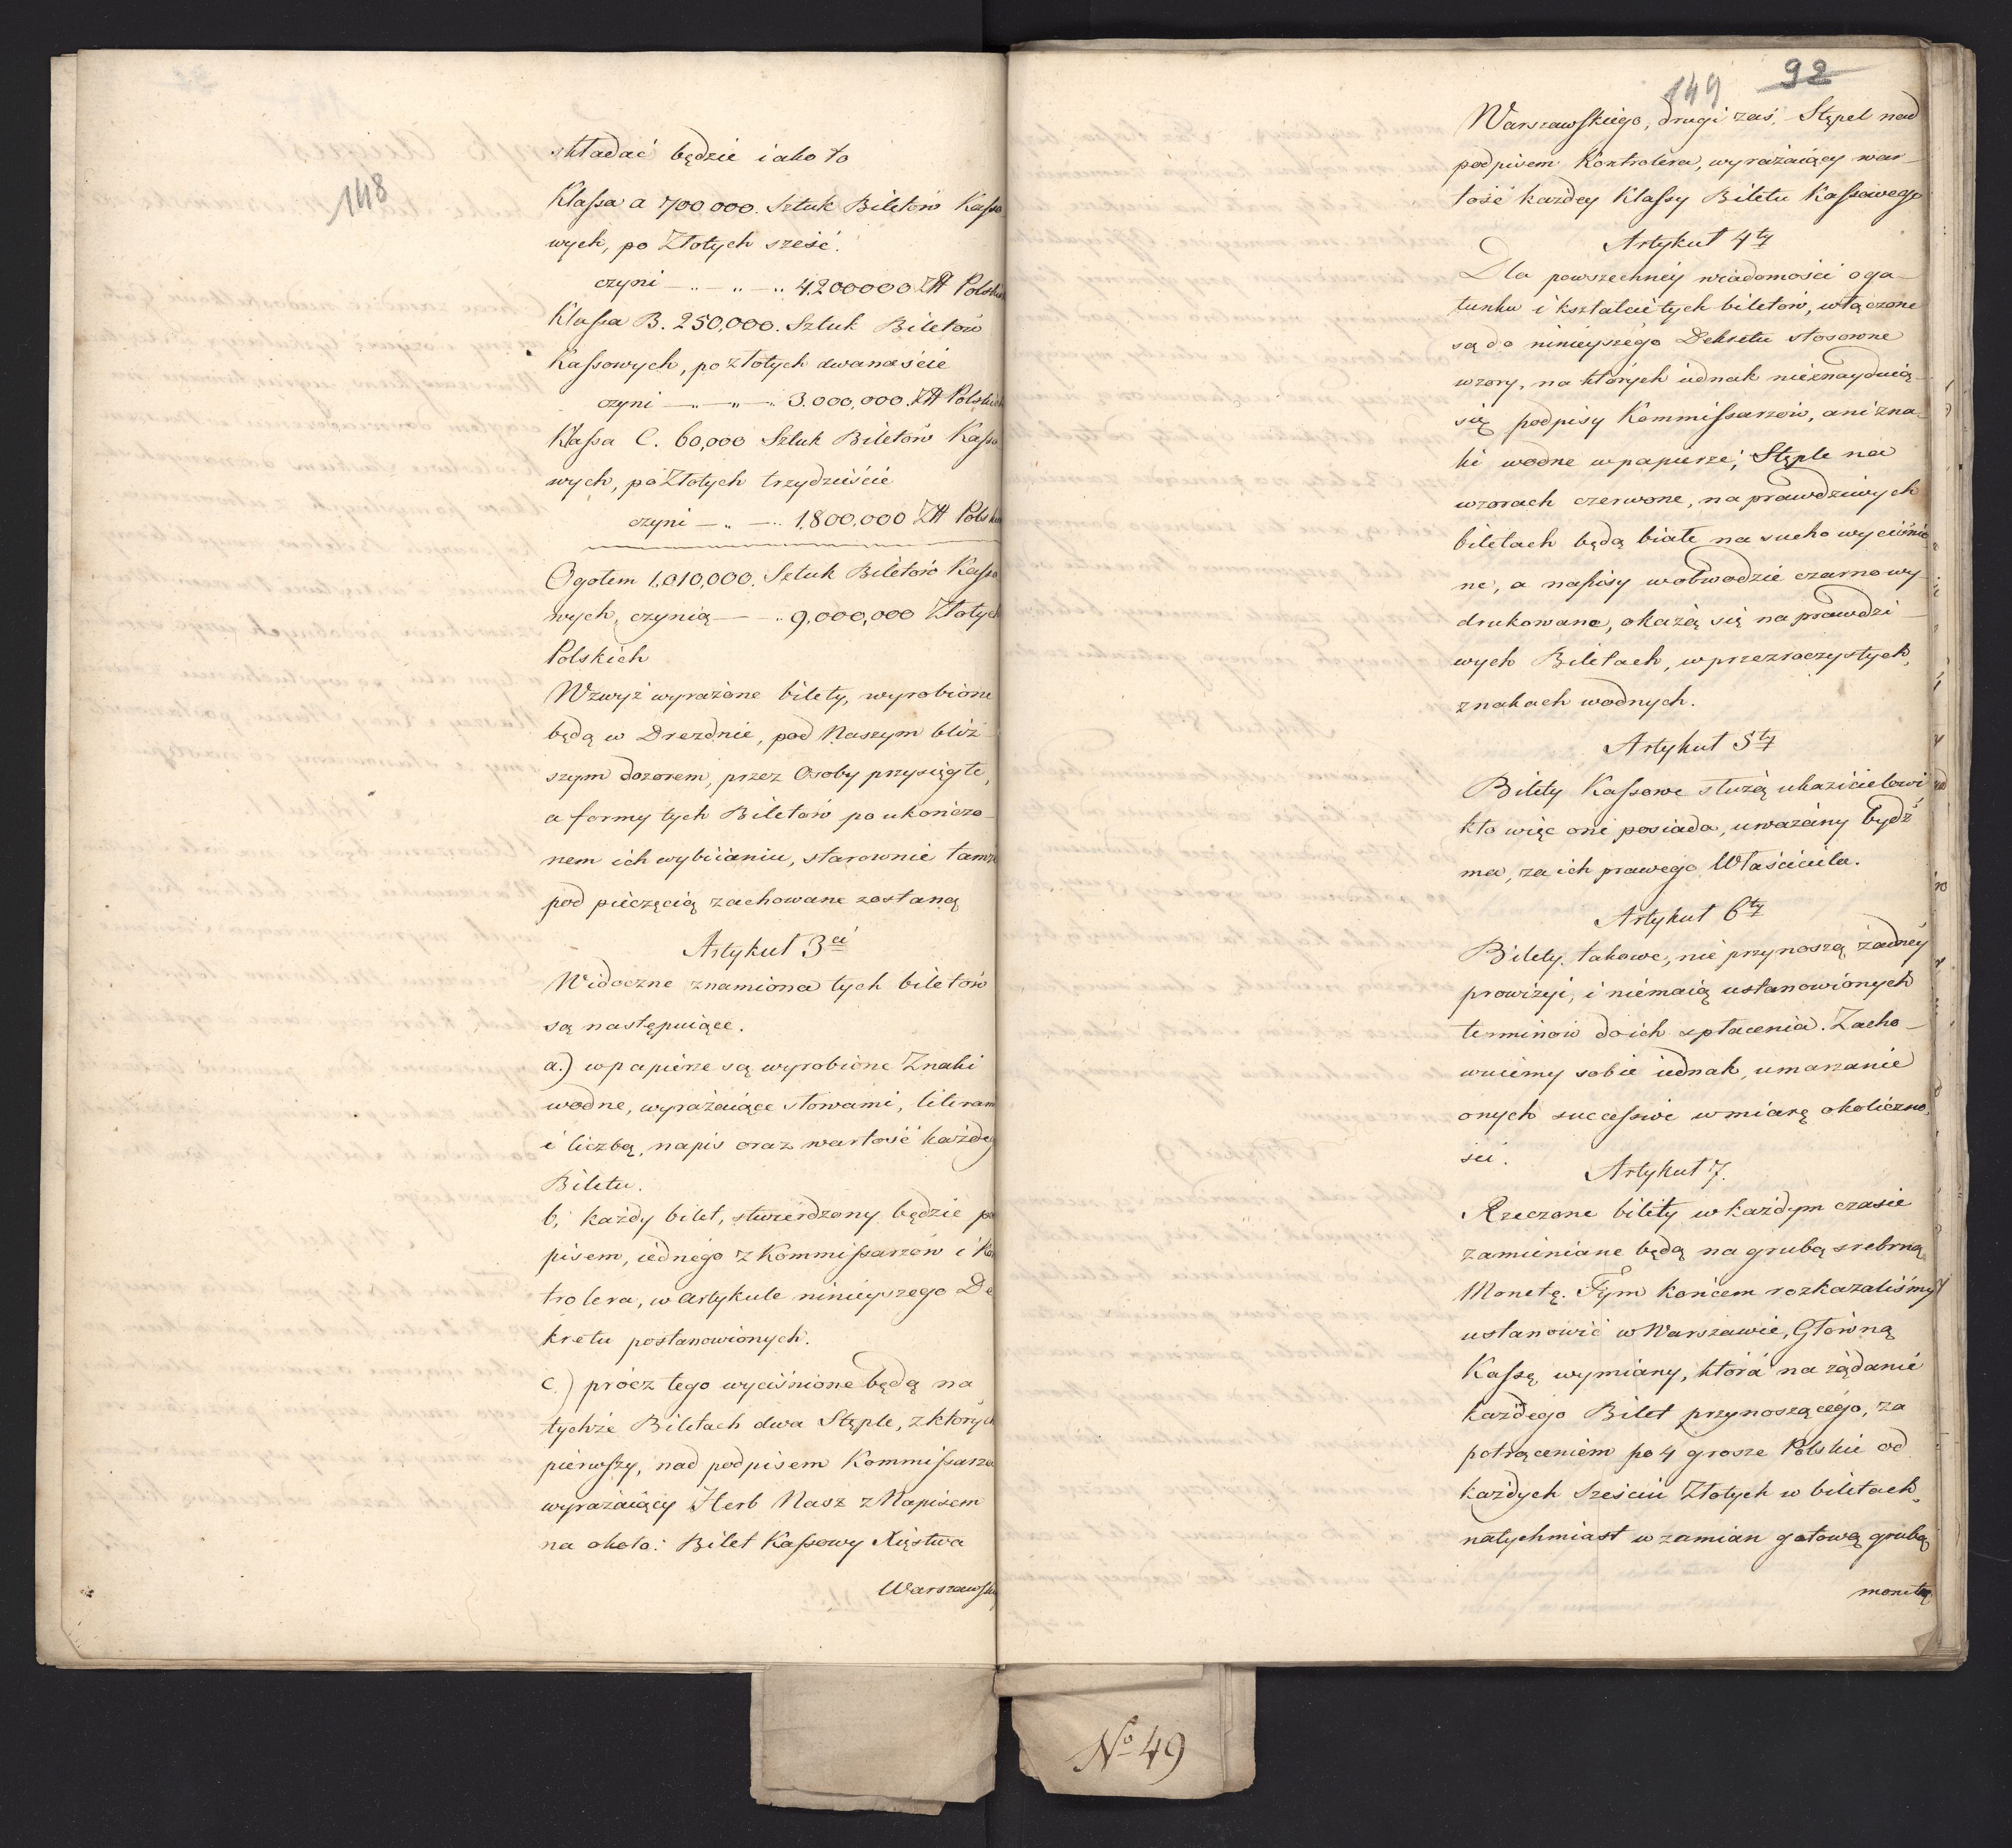 148
składać będzie iako to
Klassa a 700000. Sztuk Biletów Kasso
wych, po Złotych sześć.
czyni — " — " 4.200000 Złł Polskich
Klassa B. 250,000. Sztuk Biletów
Kassowych, po złotych dwanaście
czyni — " — " 3.000,000. Złł Polskich
Klassa C. 60,000 Sztuk Biletów Kasso
wych, po Złotych trzydzieście
czyni — " — " 1.800,000 Złł Polskich
Ogołem 1,010,000. Sztuk Biletów Kasso
wych, czynią — " 9,000,000 Złotych
Polskich
Wzwyż wyrażone bilety, wyrobione
będą w Dreznie, pod Naszym bliż
szym dozorem, przez Osoby przysięgłe,
a formy tych Biletów po ukończo
nem ich wybiianiu, starownie tamże
pod pieczęcią zachowane zostaną
Artykuł 3ci
Widoczne znamiona tych biletów
są następuiące.
a.) w papierze są wyrobione Znaki
wodne, wyrażaiące słowami, literam
i liczbą, napis oraz wartość każdeg
Biletu.
b, każdy bilet, stwierdzony będzie po
pisem, iednego z Kommissarzów i Kon
trolera, w artykule ninieyszego De
kretu postanowionych.
c.) prócz tego wyciśnione będą na
tychże Biletach dwa Stęple, z których
pierwszy, nad podpisem Kommissarza
wyrażaiący Herb Nasz z Napisem
na około: Bilet Kassowy Xięstwa
Warszawski
149 92
Warszawskiego, drugi zaś, Stępel nad
podpisem Kontrolera, wyrażaiący war
tość każdey Klassy Biletu Kassowego
Artykuł 4ty
Dla powszechney wiadomości o ga
tunku i kształcie tych biletów, włączone
są do ninieyszego Dekretu stosowne
wzory, na których iednak nieznayduią
się podpisy Kommissarzów, ani zna
ki wodne w papierze; Stęple na
wzorach czerwone, na prawdziwych
biletach będą białe na sucho wyciśnio
ne, a napisy w obwodzie czarno wy
drukowane, okażą się na prawdzi
wych Biletach, w przezroczystych
znakach wodnych.
Artykuł 5ty
Bilety Kassowe służą ukazicielowi
kto więc one posiada, uważany bydź
ma, za ich prawego Właściciela.
Artykuł 6ty
Bilety takowe, nie przynoszą żadney
prowizyi, i niemaią ustanowionych
terminów do ich spłacenia. Zacho
wuiemy sobie iednak, umarzanie
onych successive w miarę okoliczno
ści.
Artykuł 7.
Rzeczone bilety w każdym czasie
zamieniane będą na grubą srebrną
Monetę. Tym końcem rozkazaliśmy
ustanowić w Warszawie, Główną
Kassę wymiany, która na żądanie
każdego Bilet przynoszącego, za
potrąceniem po 4 grosze Polskie od
każdych Sześciu Złotych w biletach
natychmiast w zamian gotową grubą
monetą
No 49